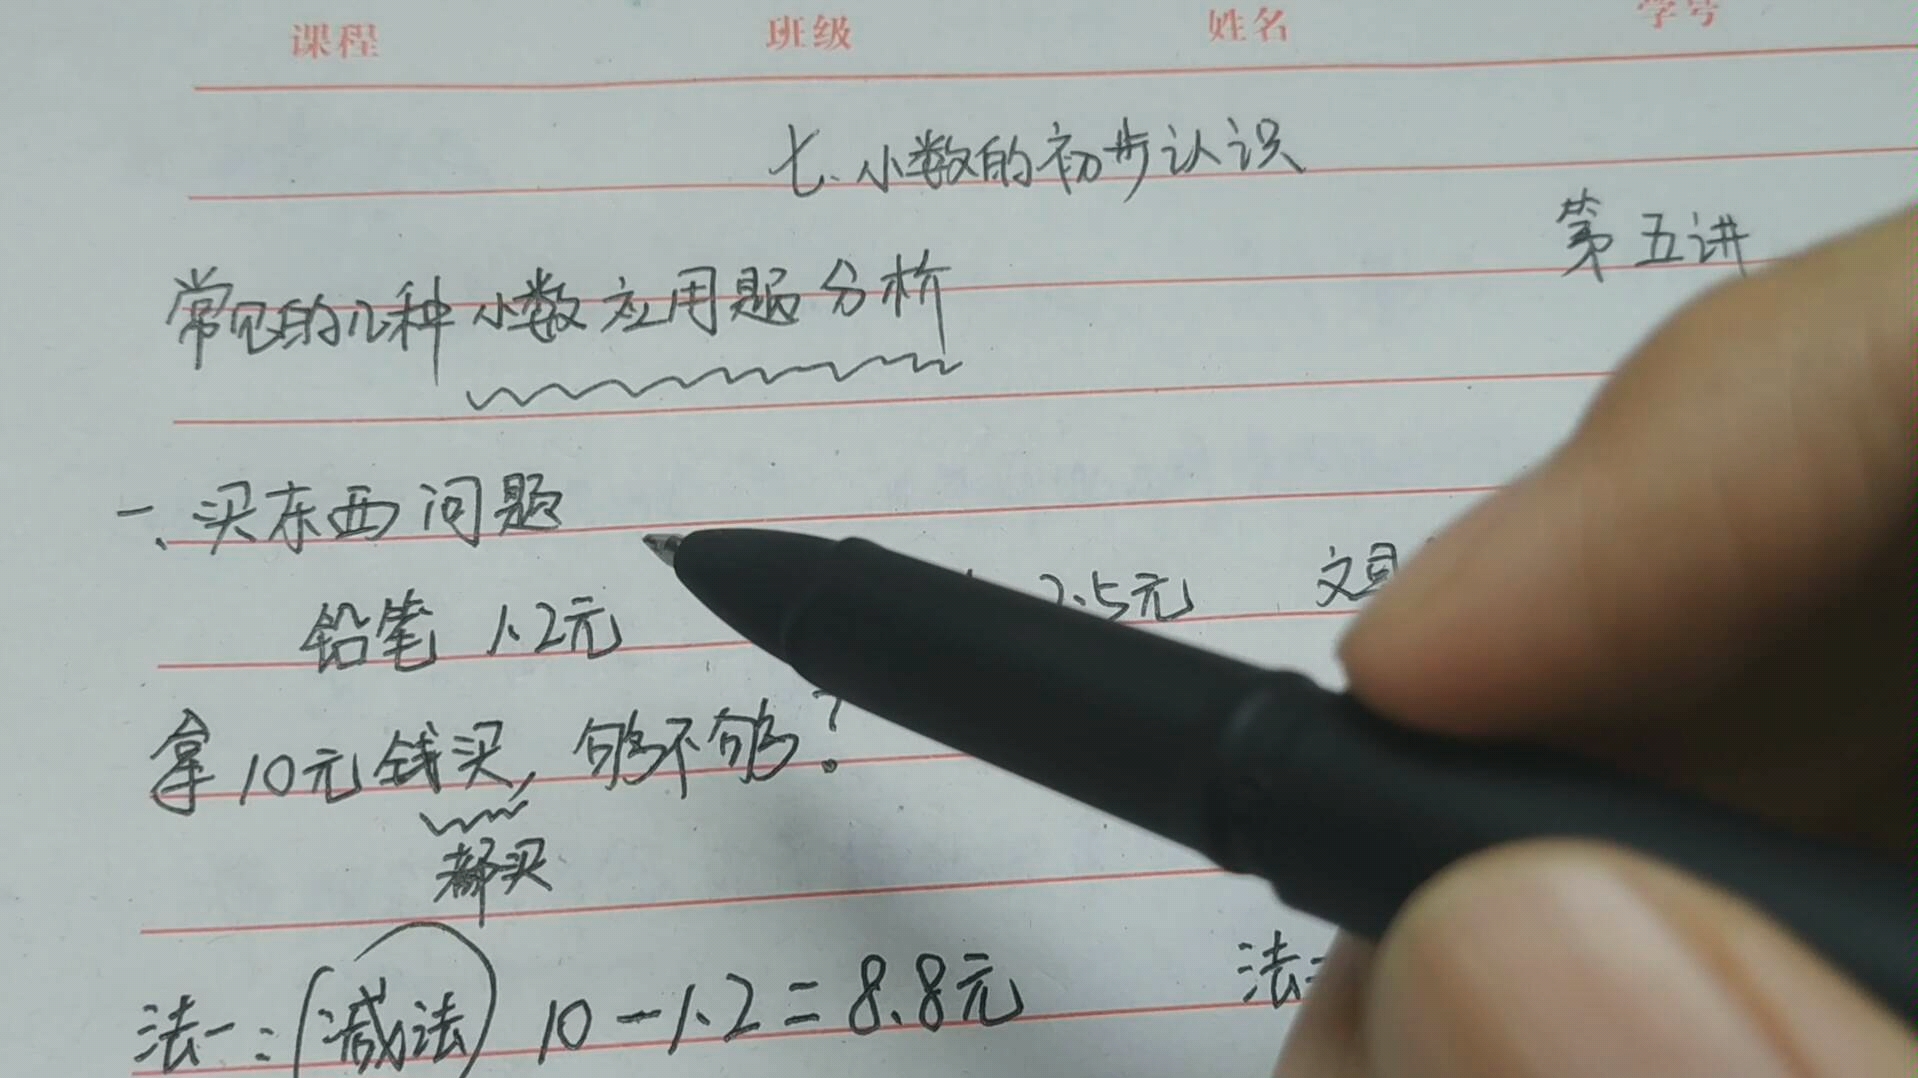 课程 班级 姓名 学号
七、小数的初步认识
第五讲
常见的几种小数应用题分析
一、买东西问题
铅笔 1.2元 2.5元 文具
拿10元钱买,够不够?
都买
法一:(减法) 10-1.2=8.8元 法二